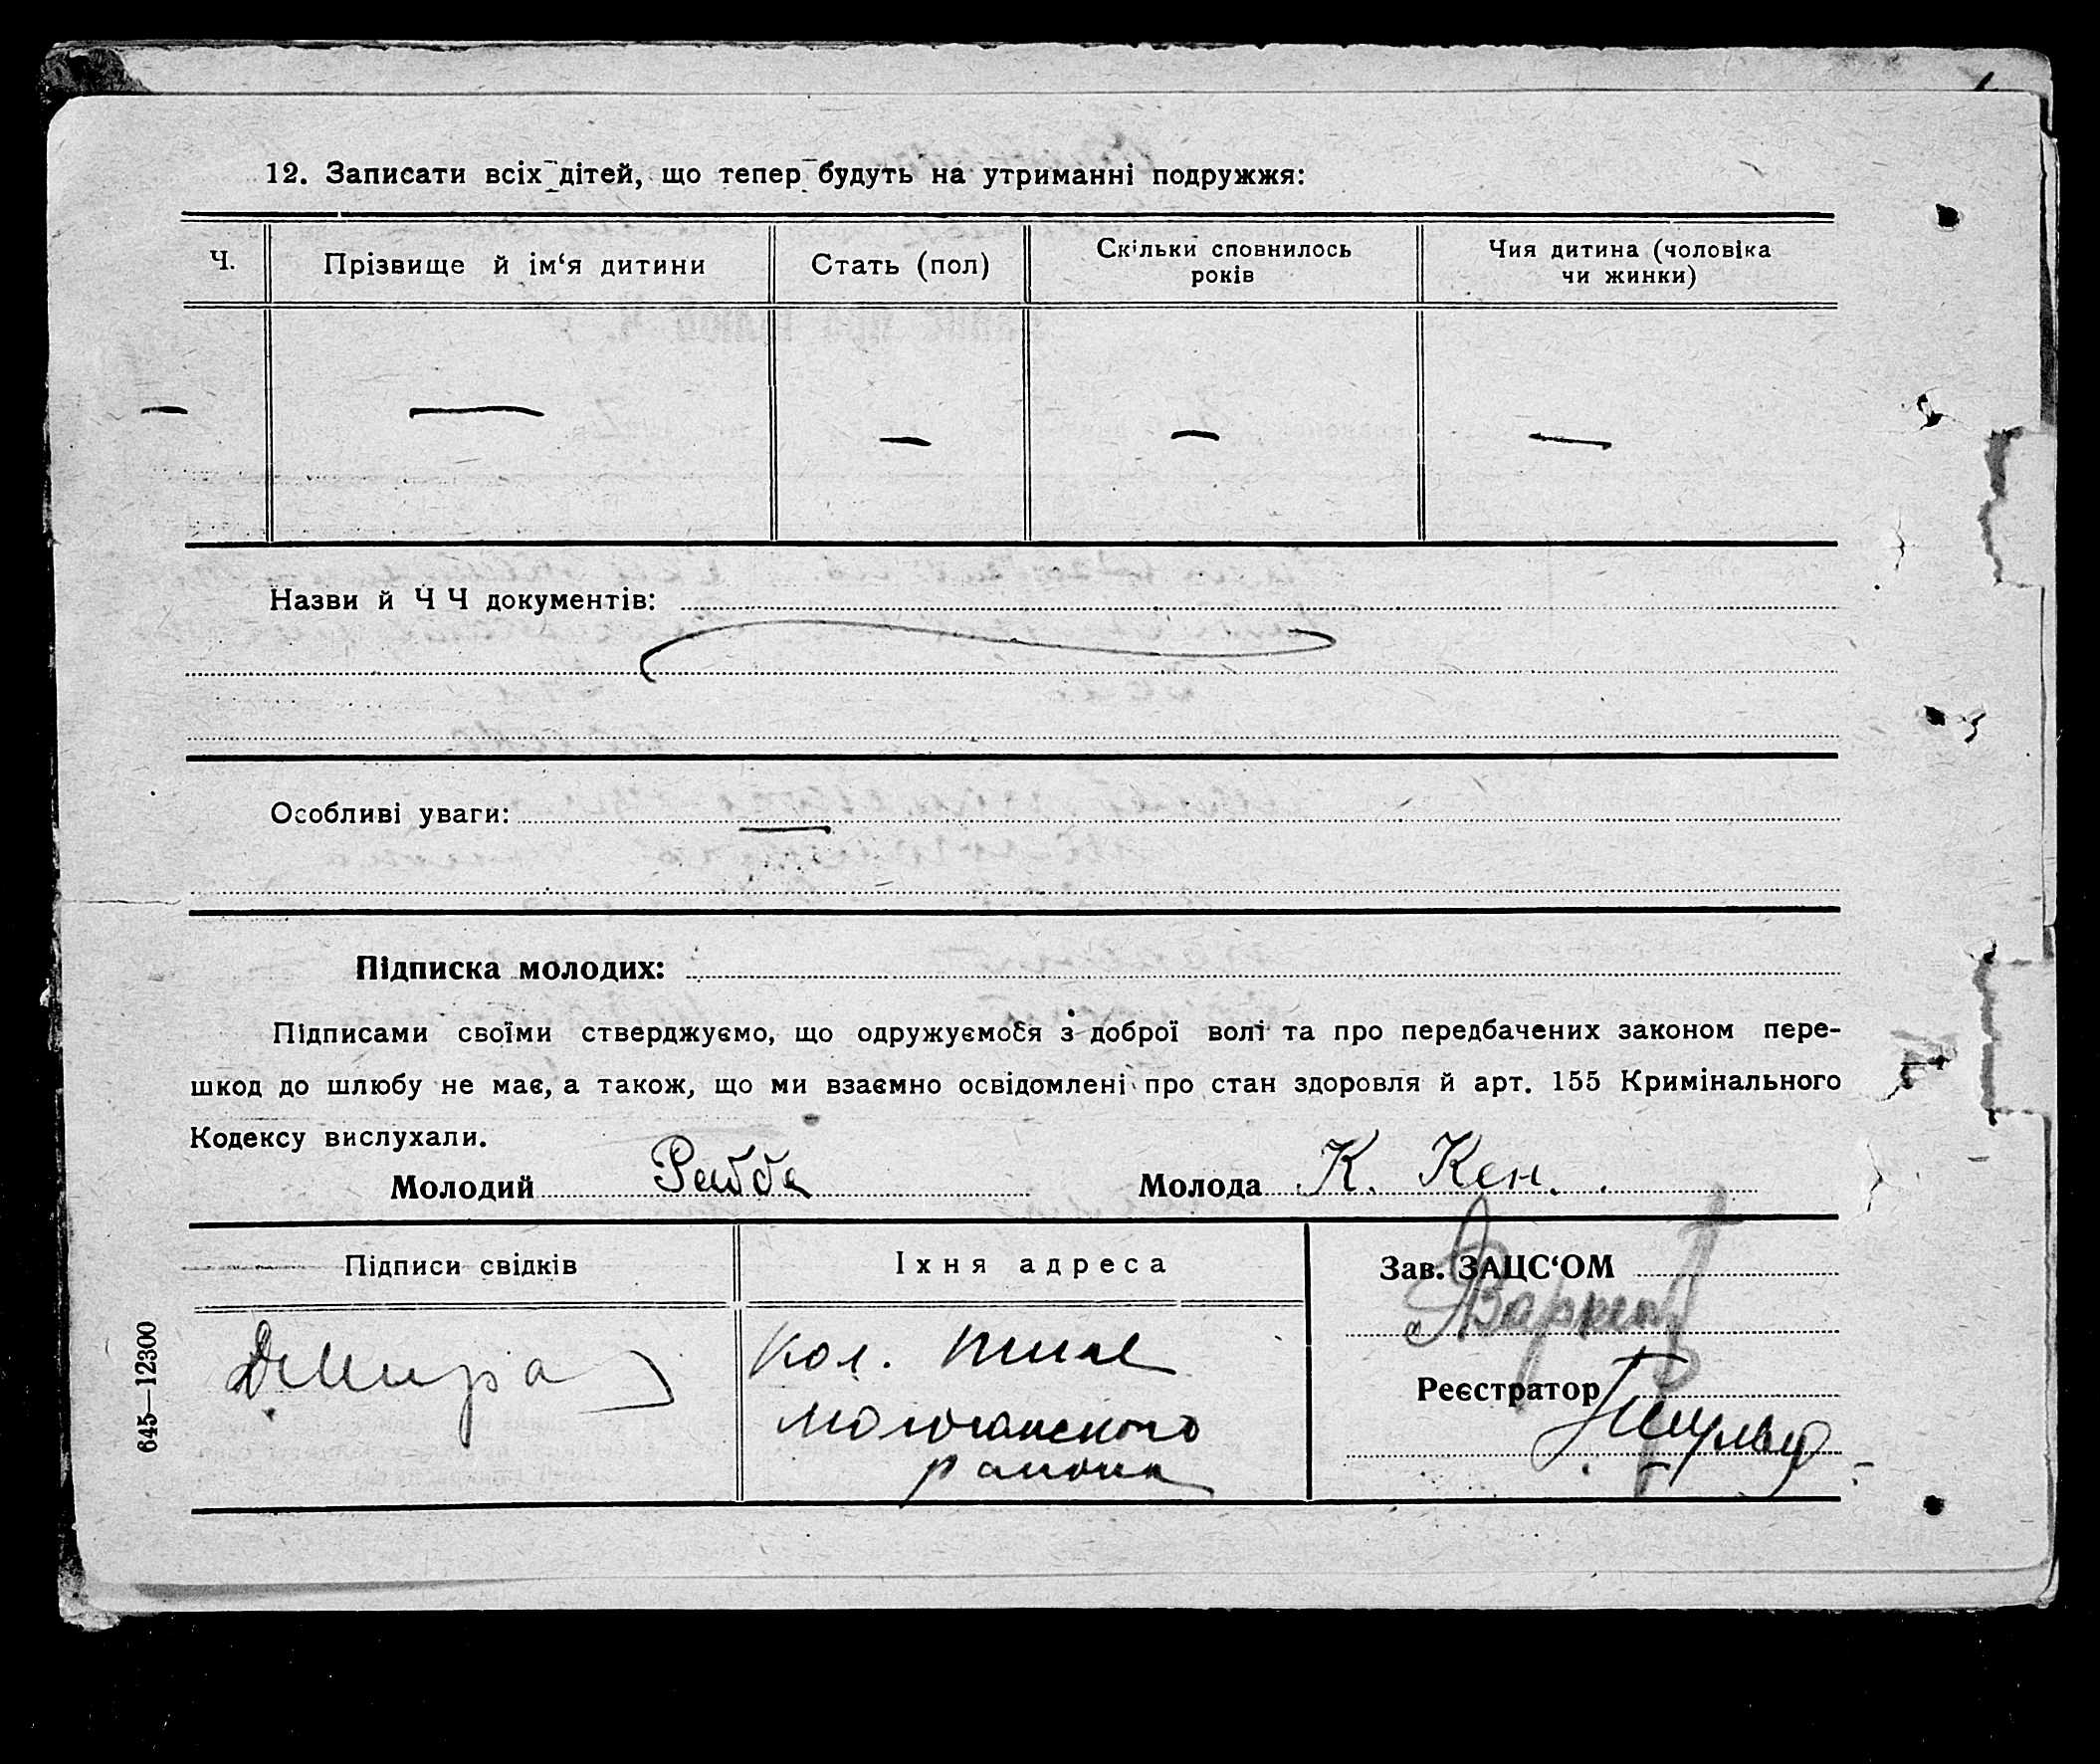 12. Записати всіх дітей, що тепер будуть на утриманні подружжя:
Ч.
Прізвище й ім‘я дитини
Стать (пол)
Скільки сповнилось
років
Чия дитина (чоловіка
чи жинки)
— — — — —
Назви й Ч Ч документів:
Особливі уваги: —
Підписка молодих:
Підписами своїми стверджуємо, що одружуємося з доброї волі та про передбачених законом пере-
шкод до шлюбу не має, а також, що ми взаємно освідомлені про стан здоровля й арт. 155 Кримінального
Кодексу вислухали.
Молодий
Молода К. Кен.
Підписи свідків
Їхня адреса
Зав. ЗАЦС‘ОМ
Кол.
района
Реєстратор
645—12300